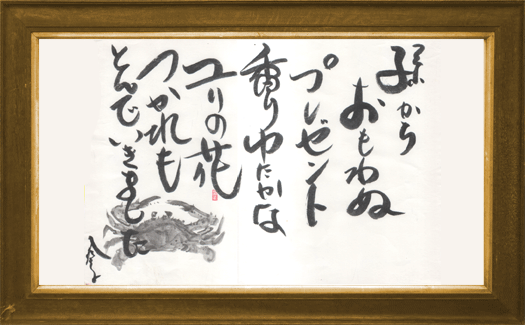 孫から
おもわぬ
プレゼント
香りゆたかな
ユリの花
つかれも
とんでいきました